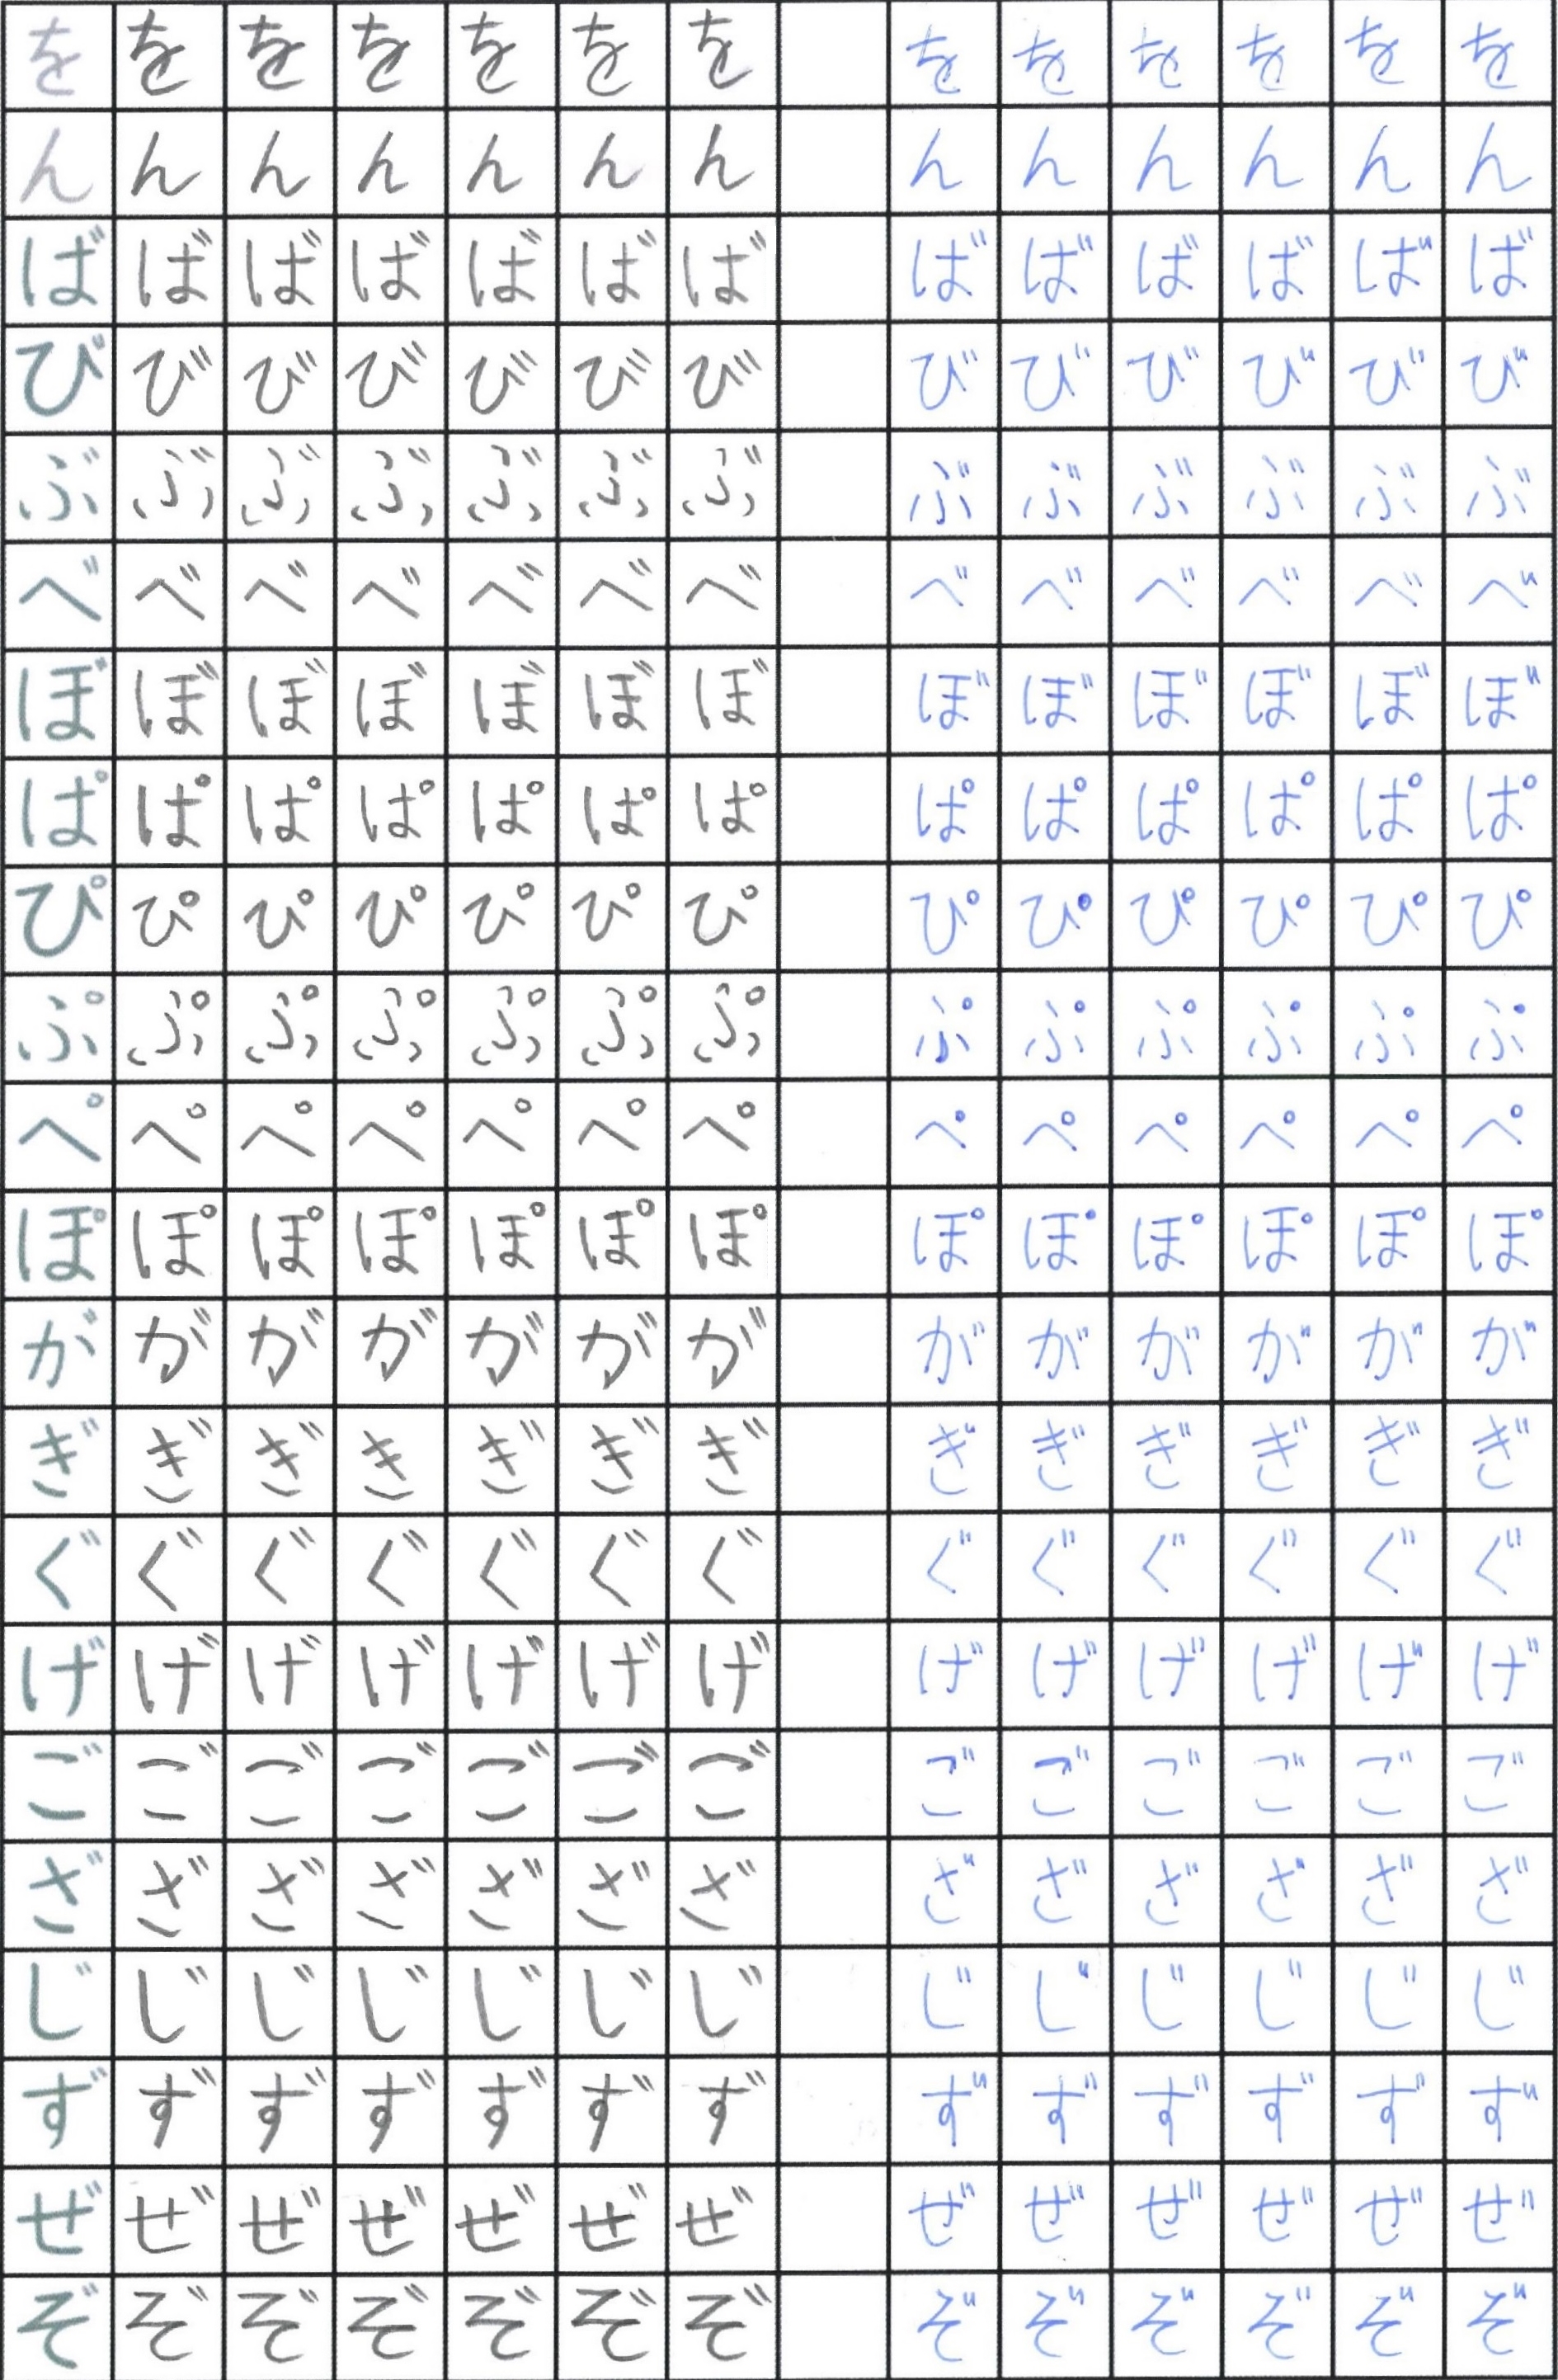 を を を を を を を を を を を を を
ん ん ん ん ん ん ん ん ん ん ん ん ん
ば ば ば ば ば ば ば ば ば ば ば ば ば
び び び び び び び び び び び び び
ぶ ぶ ぶ ぶ ぶ ぶ ぶ ぶ ぶ ぶ ぶ ぶ ぶ
べ べ べ べ べ べ べ べ べ べ べ べ べ
ぼ ぼ ぼ ぼ ぼ ぼ ぼ ぼ ぼ ぼ ぼ ぼ ぼ
ぱ ぱ ぱ ぱ ぱ ぱ ぱ ぱ ぱ ぱ ぱ ぱ ぱ
ぴ ぴ ぴ ぴ ぴ ぴ ぴ ぴ ぴ ぴ ぴ ぴ ぴ
ぷ ぷ ぷ ぷ ぷ ぷ ぷ ぷ ぷ ぷ ぷ ぷ ぷ
ぺ ぺ ぺ ぺ ぺ ぺ ぺ ぺ ぺ ぺ ぺ ぺ ぺ
ぽ ぽ ぽ ぽ ぽ ぽ ぽ ぽ ぽ ぽ ぽ ぽ ぽ
が が が が が が が が が が が が が
ぎ ぎ ぎ き ぎ ぎ ぎ ぎ ぎ ぎ ぎ ぎ ぎ
ぐ ぐ ぐ ぐ ぐ ぐ ぐ ぐ ぐ ぐ ぐ ぐ ぐ
げ げ げ げ げ げ げ げ げ げ げ げ げ
ご ご ご ご ご ご ご ご ご ご ご ご ご
ざ ざ ざ ざ ざ ざ ざ ざ ざ ざ ざ ざ ざ
じ じ じ じ じ じ じ じ じ じ じ じ じ
ず ず ず ず ず ず ず ず ず ず ず ず ず
ぜ ぜ ぜ ぜ ぜ ぜ ぜ ぜ ぜ ぜ ぜ ぜ ぜ
ぞ ぞ ぞ ぞ ぞ ぞ ぞ ぞ ぞ ぞ ぞ ぞ ぞ